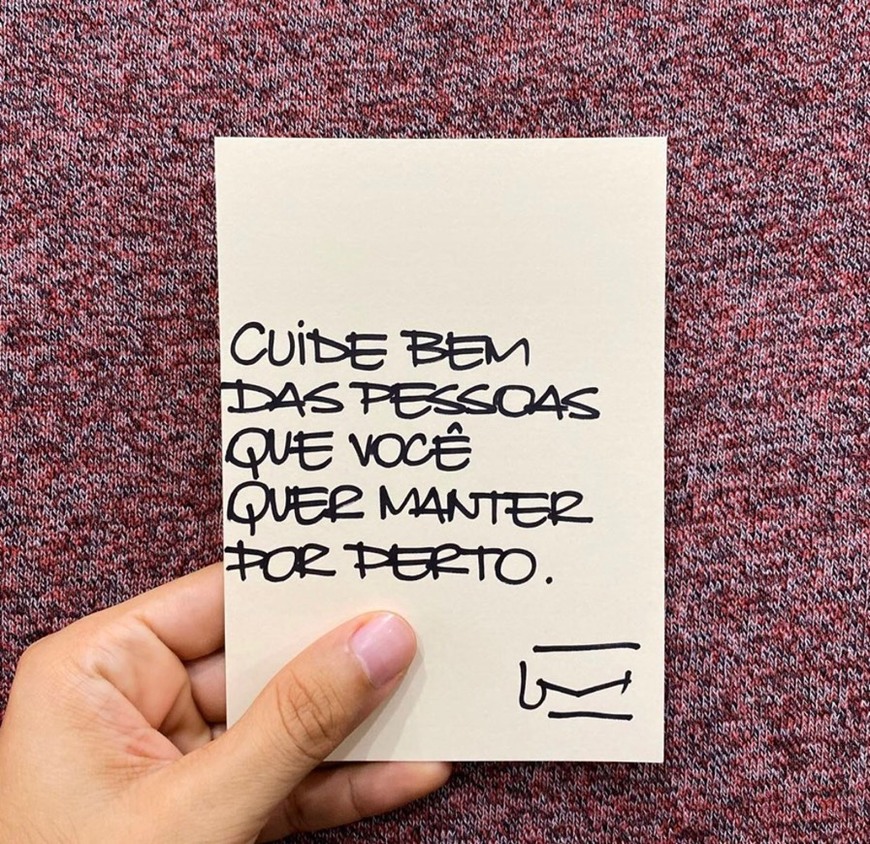 CUIDE BEM
DAS PESSOAS
QUE VOCÊ
QUER MANTER
POR PERTO.